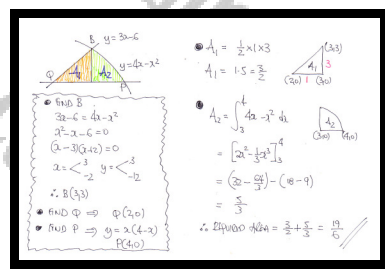 B
y=3x-6
y=4x-x²
A₁
A₂
Q
P
FIND B
3x-6 = 4x-x²
x²-x-6=0
(x-3)(x+2)=0
x = < 3 -2 y = < 3 -12
∴ B(3,3)
FIND Q ⇒ Q(2,0)
FIND P ⇒ y = x(4-x)
P(4,0)
A₁ = 1/2 × 1 × 3
A₁ = 1.5 = 3/2
(3,3)
A₁
3
(2,0) 1 (3,0)
A₂ = ∫₃⁴ 4x - x² dx
A₂
(3,0) (4,0)
= [2x² - 1/3x³]₃⁴
= (32 - 64/3) - (18-9)
= 5/3
∴ REQUIRED AREA = 3/2 + 5/3 = 19/6